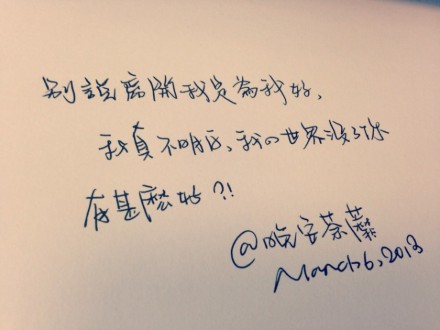 別說離開我是為我好,
我真不明白,我的世界沒了你
有甚麼好?!
@晚安荼蘼
March 6, 2013